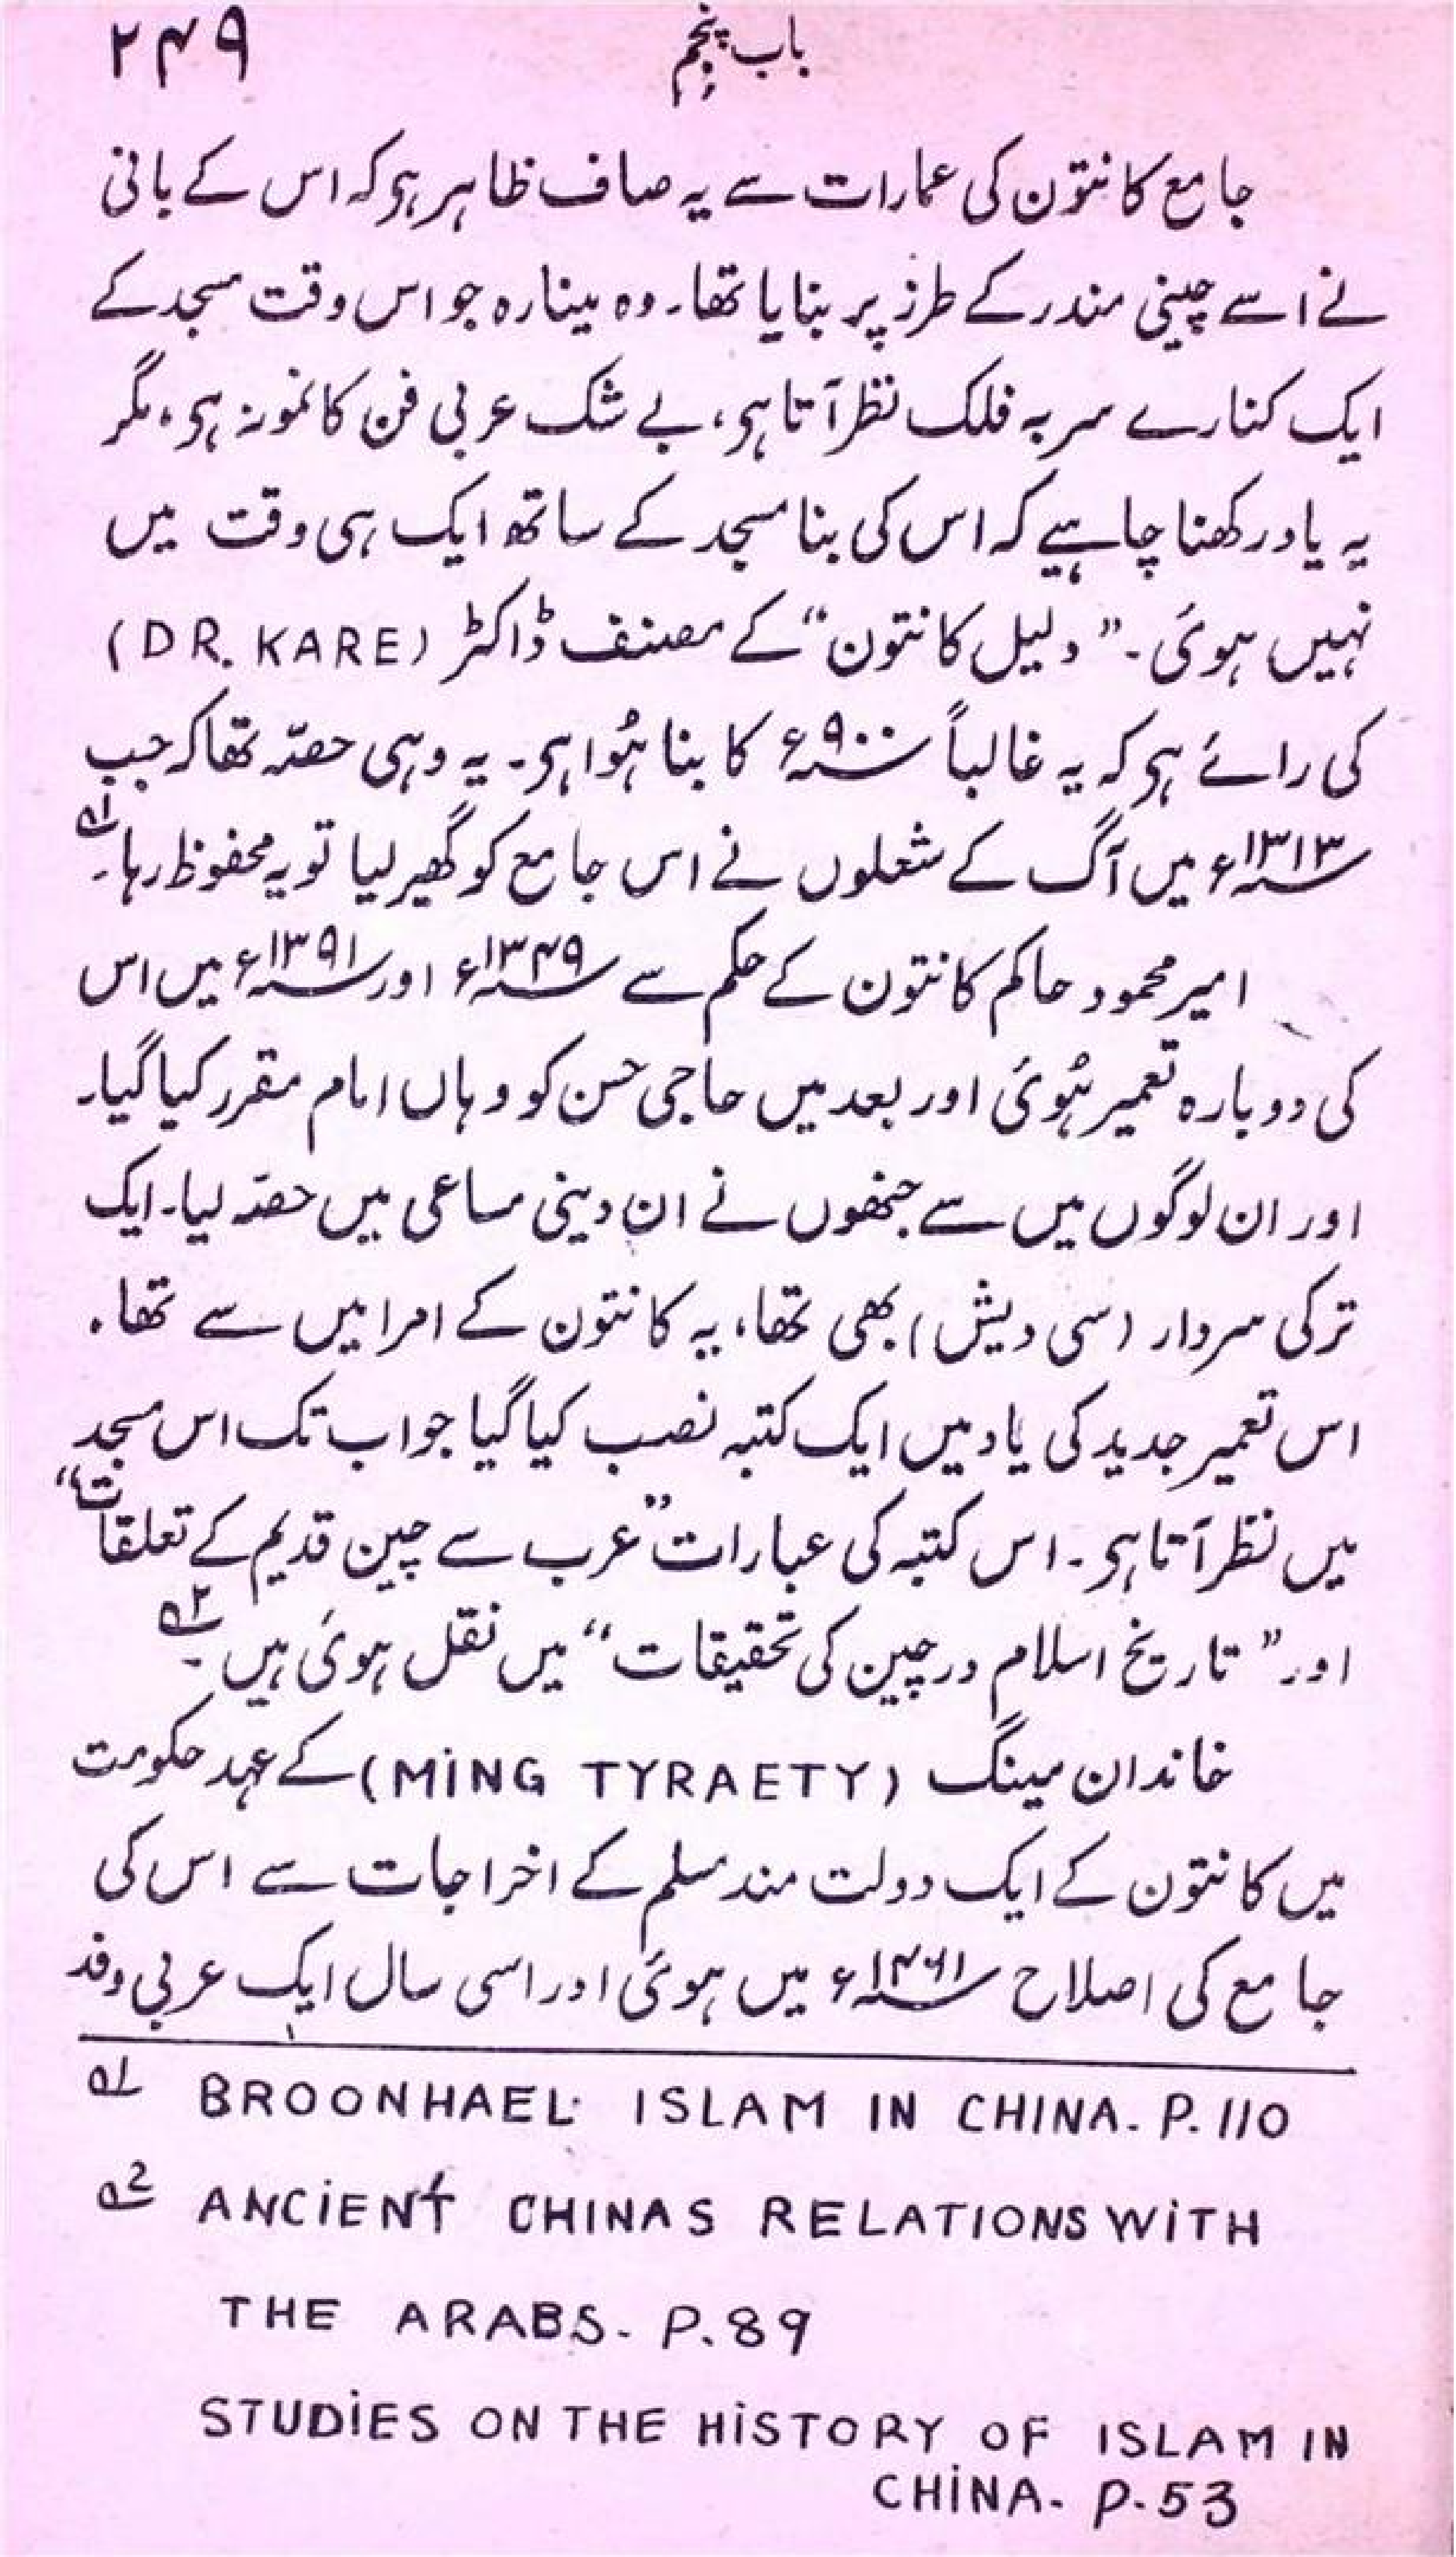 باب پنجم ۲۴۹
جامع کانتون کی عمارات سے یہ صاف ظاہر ہو کہ اس کے بانی
نے اسے چینی مندر کے طرز پر بنایا تھا۔ وہ مینارہ جو اس وقت مسجد کے
ایک کنارے سر بہ فلک نظر آتا ہو، بے شک عربی فن کا نمونہ ہو، مگر
یہ یاد رکھنا چاہیے کہ اس کی بنا مسجد کے ساتھ ایک ہی وقت میں
نہیں ہوئی۔ ”دلیل کانتون“ کے مصنف ڈاکٹر (DR. KARE)
کی رائے ہو کہ یہ غالباً ۹۰۰ء کا بنا ہُوا ہو۔ یہ وہی حصّہ تھا کہ جب
۱۳۱۳ء میں آگ کے شعلوں نے اس جامع کو گھیر لیا تو یہ محفوظ رہا۔ ۱ہ
امیر محمود حاکم کانتون کے حکم سے ۱۳۴۹ء اور ۱۳۹۱ء میں اس
کی دوبارہ تعمیر ہُوئی اور بعد میں حاجی حسن کو وہاں امام مقرر کیا گیا۔
اور ان لوگوں میں سے جنھوں نے ان دینی مساعی میں حصّہ لیا۔ ایک
ترکی سردار (سی دیش) بھی تھا، یہ کانتون کے امرا میں سے تھا۔
اس تعمیر جدید کی یاد میں ایک کتبہ نصب کیا گیا جو اب تک اس مسجد
میں نظر آتا ہو۔ اس کتبہ کی عبارات ”عرب سے چین قدیم کے تعلقات“
اور ”تاریخ اسلام در چین کی تحقیقات“ میں نقل ہوئی ہیں۔ ۲ہ
خاندان مینگ (MiNG TYRAETY) کے عہد حکومت
میں کانتون کے ایک دولت مند مسلم کے اخراجات سے اس کی
جامع کی اصلاح ۱۴۶۱ء میں ہوئی اور اسی سال ایک عربی وفد
۱ہ BROONHAEL ISLAM IN CHINA. P. 110
۲ہ ANCiENT CHINAS RELATIONS WiTH
THE ARABS. P. 89
STUDiES ON THE HiSTORY OF ISLAM IN
CHiNA. P. 53